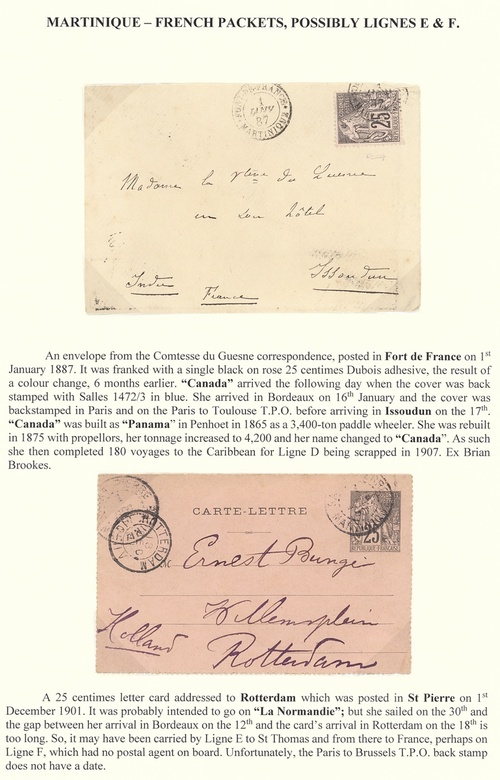 MARTINIQUE – FRENCH PACKETS, POSSIBLY LIGNES E & F.
FORT-DE-FRANCE
1
JANV
87
MARTINIQUE
25
Madame la Vtesse du Guesne
en son hôtel
Issoudun
Indre
France
An envelope from the Comtesse du Guesne correspondence, posted in Fort de France on 1st
January 1887. It was franked with a single black on rose 25 centimes Dubois adhesive, the result of
a colour change, 6 months earlier. “Canada” arrived the following day when the cover was back
stamped with Salles 1472/3 in blue. She arrived in Bordeaux on 16th January and the cover was
backstamped in Paris and on the Paris to Toulouse T.P.O. before arriving in Issoudun on the 17th.
“Canada” was built as “Panama” in Penhoet in 1865 as a 3,400-ton paddle wheeler. She was rebuilt
in 1875 with propellors, her tonnage increased to 4,200 and her name changed to “Canada”. As such
she then completed 180 voyages to the Caribbean for Ligne D being scrapped in 1907. Ex Brian
Brookes.
CARTE-LETTRE
ROTTERDAM
MARTINIQUE
25
REPUBLIQUE FRANÇAISE
Ernest Bunge
Willemsplein
Holland
Rotterdam
A 25 centimes letter card addressed to Rotterdam which was posted in St Pierre on 1st
December 1901. It was probably intended to go on “La Normandie”; but she sailed on the 30th and
the gap between her arrival in Bordeaux on the 12th and the card’s arrival in Rotterdam on the 18th is
too long. So, it may have been carried by Ligne E to St Thomas and from there to France, perhaps on
Ligne F, which had no postal agent on board. Unfortunately, the Paris to Brussels T.P.O. back stamp
does not have a date.